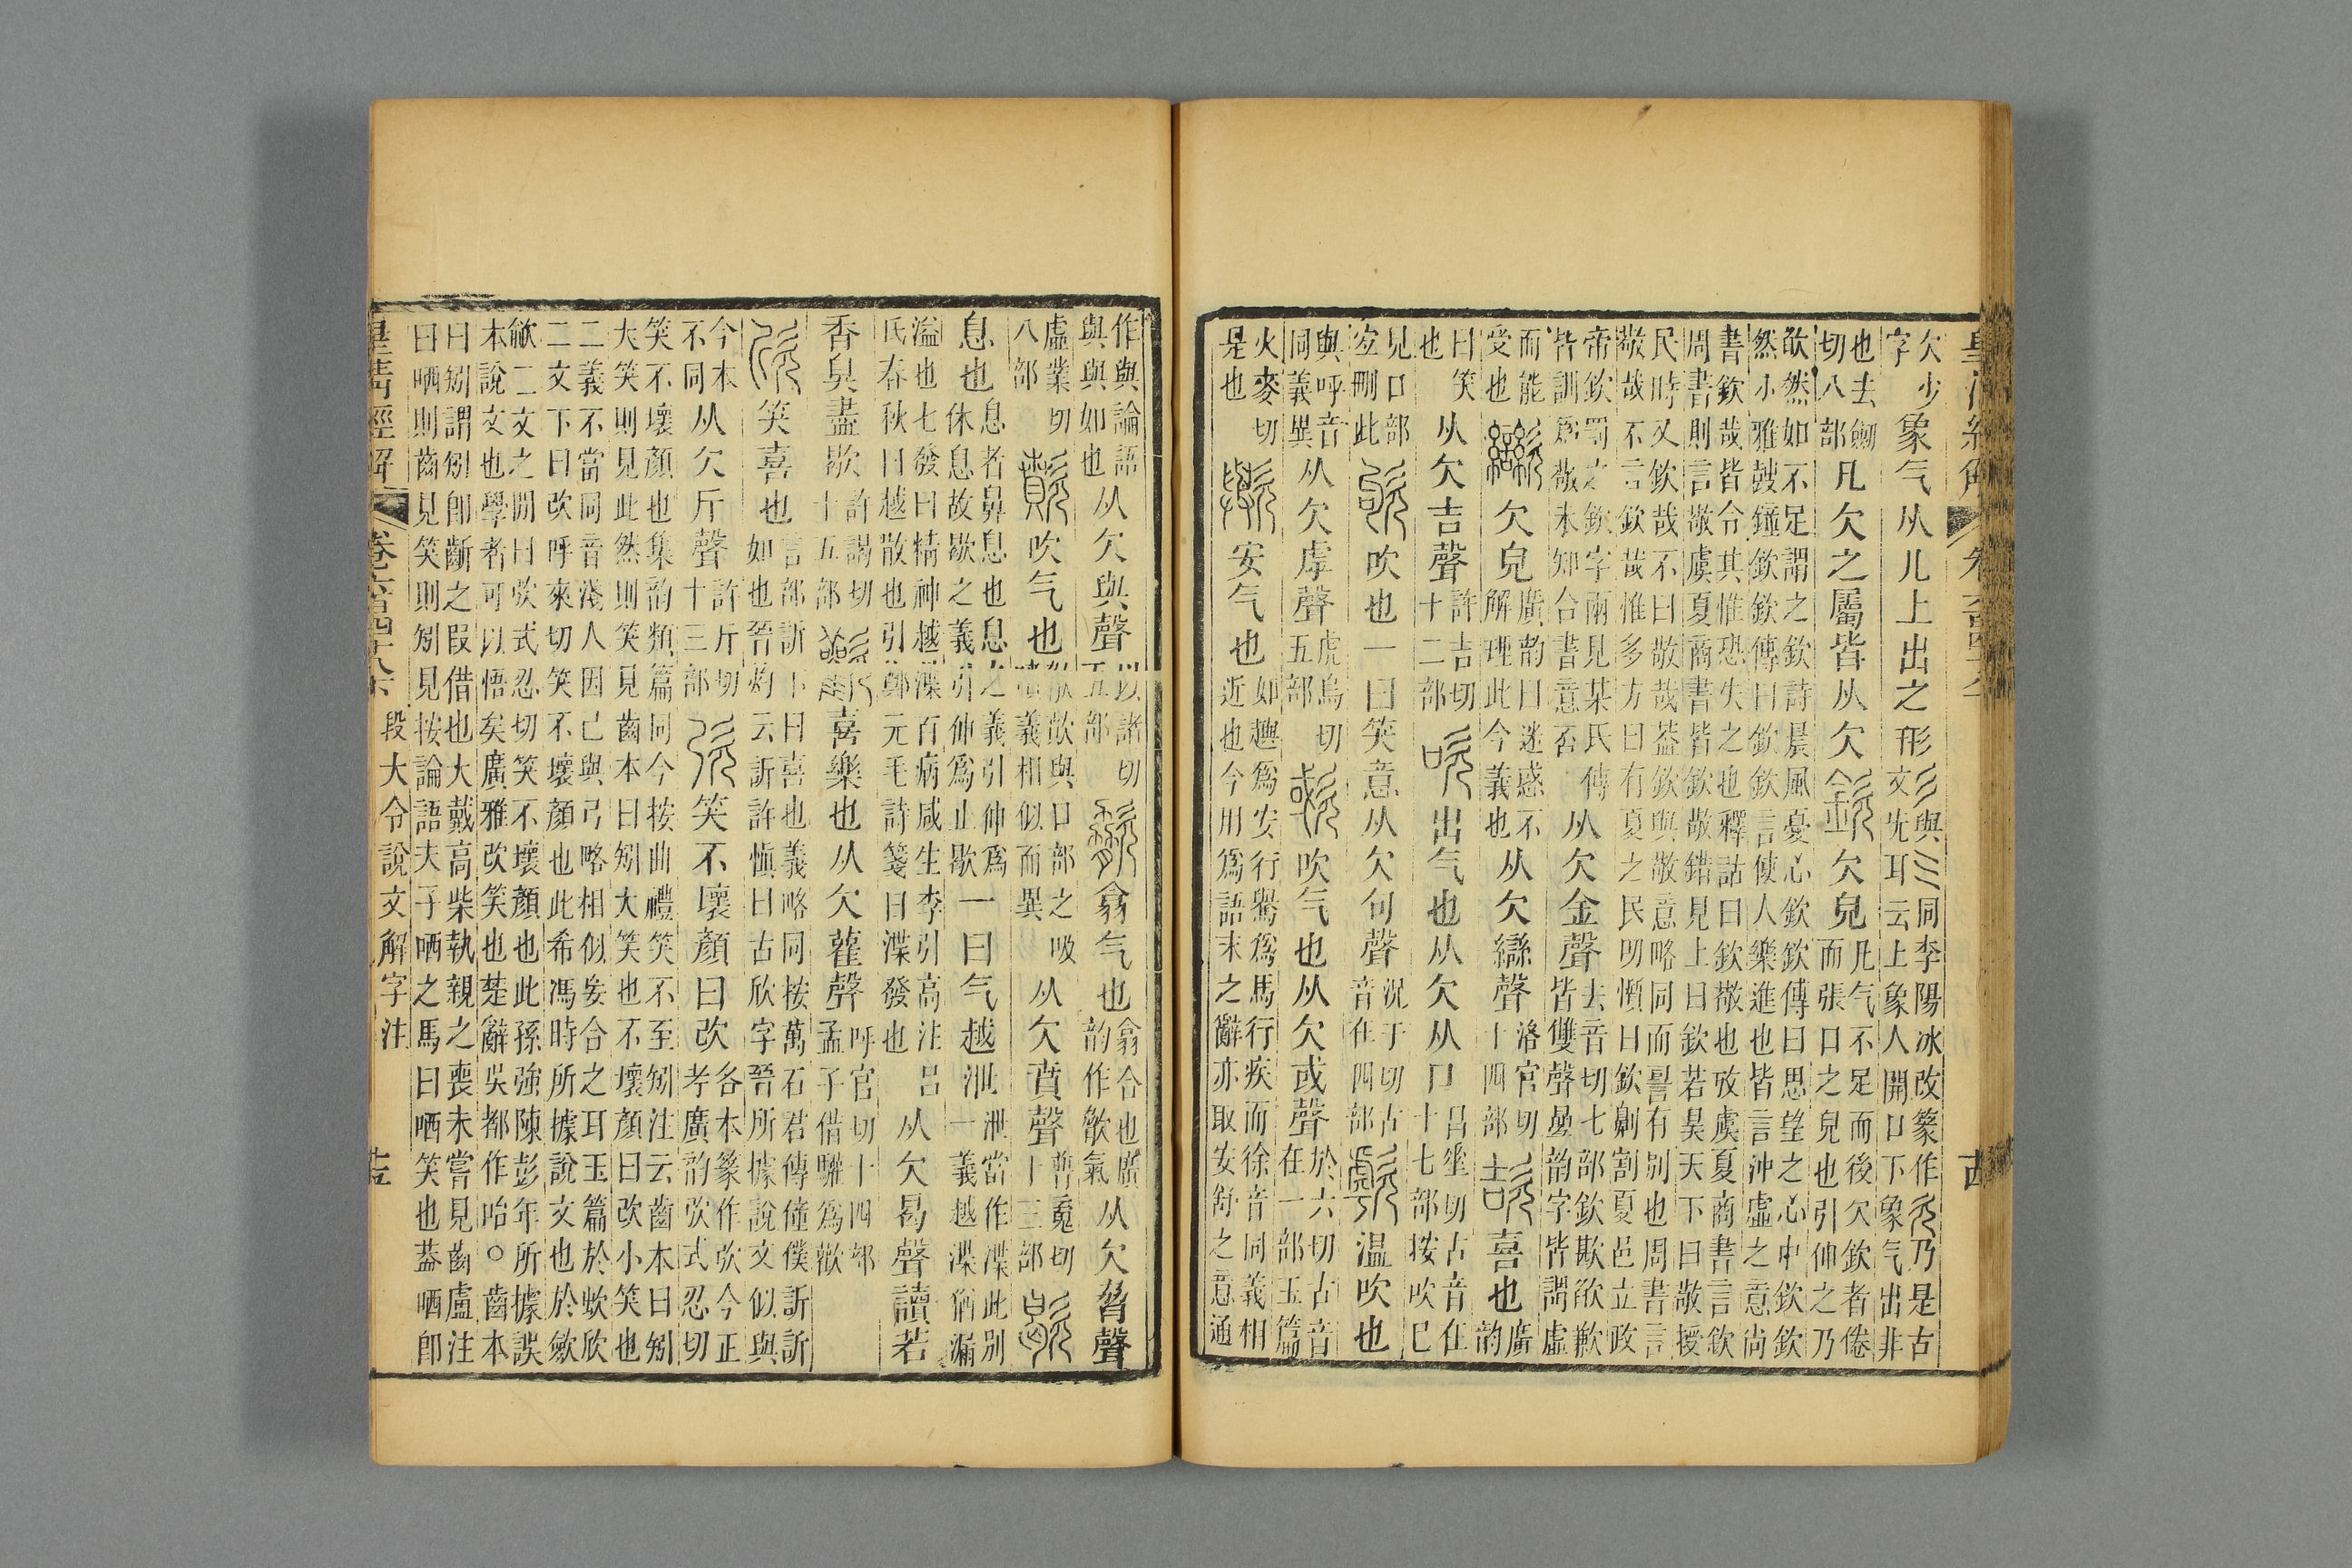 欠少字象气从儿上出之形彡與三同李陽冰改篆作𣣓乃是古文旡耳云上象人開口下象气出非
也去劒切八部凡欠之屬皆从欠欽欠皃凡气不足而後欠欽者倦而張口之皃也引伸之乃
欿然如不足謂之欽詩晨風憂心欽欽傳曰思望之心中欽欽然小雅鼓鐘欽欽傳曰欽欽言使人樂進也皆言沖虛之意尙
書欽哉皆令其惟恐失之也釋詁曰欽敬也攷虞夏商書言欽周書則言敬虞夏商書皆欽敬錯見上曰欽若昊天下曰敬授
民時又欽哉不曰敬哉葢欽與敬意略同而㽞有別也周書言敬哉不言欽哉惟多方曰有夏之民叨懫日欽劓割夏邑立政
帝欽罰之欽字兩見某氏傳皆訓爲敬未知合書意否从欠金聲去音切七部欽欺欲歉皆雙聲曡韵字皆謂虛
而能受也𣤶欠皃廣韵曰迷惑不解理此今義也从欠䜌聲洛官切十四部㰻喜也廣韵
曰笑也从欠吉聲許吉切十二部吹出气也从欠从口昌垂切古音在十七部按吹已
見口部㝎刪此欨吹也一曰笑意从欠句聲況于切古音在四部歑温吹也
與呼音同義異从欠虖聲虎烏切五部㰲吹气也从欠或聲於六切古音在一部玉篇
火麥切是也歟安气也如趣爲安行鸒爲馬行疾而徐音同義相近也今用爲語末之辭亦取安舒之意通
作與論語與與如也从欠與聲以諸切五部㰼翕气也翕合也廣韵作歙氣从欠脅聲
虛業切八部歕吹气也㰲歕與口部之吸噴義相似而異从欠賁聲普䰟切十三部歇
息也息者鼻息也息之義引伸爲休息故歇之義引伸爲止歇一曰气越泄泄當作渫此別一義越渫猶漏
溢也七發曰精神越渫百病咸生李引高注呂氏春秋曰越散也引鄭元毛詩箋曰渫發也从欠曷聲讀若
香臭盡歇許謁切十五部歡喜樂也从欠雚聲呼官切十四部孟子借驩爲歡
欣笑喜也言部訢下曰喜也義略同按萬石君傳僮僕訢訢如也晉灼云訢許愼曰古欣字晉所據說文似與
今本不同从欠斤聲許斤切十三部弞笑不壞顏曰弞各本篆作㰞今正考廣韵弞式忍切
笑不壞顏也集韵類篇同今按曲禮笑不至矧注云齒本曰矧大笑則見此然則笑見齒本曰矧大笑也不壞顏曰弞小笑也
二義不當同音淺人因已與弓略相似妄合之耳玉篇於㰞欣二文下曰弞呼來切笑不壞顏也此希馮時所據說文也於歙
歗二文之閒曰弞式忍切笑不壞顏也此孫強陳彭年所據誤本說文也學者可以悟矣廣雅弞笑也楚辭吳都作咍○齒本
曰矧謂矧卽齗之叚借也大戴高柴執親之喪未嘗見齒盧注曰哂則齒見笑則矧見按論語夫子哂之馬曰哂笑也葢哂卽
皇清經解 卷六百四十八下 段大令說文解字注 十五